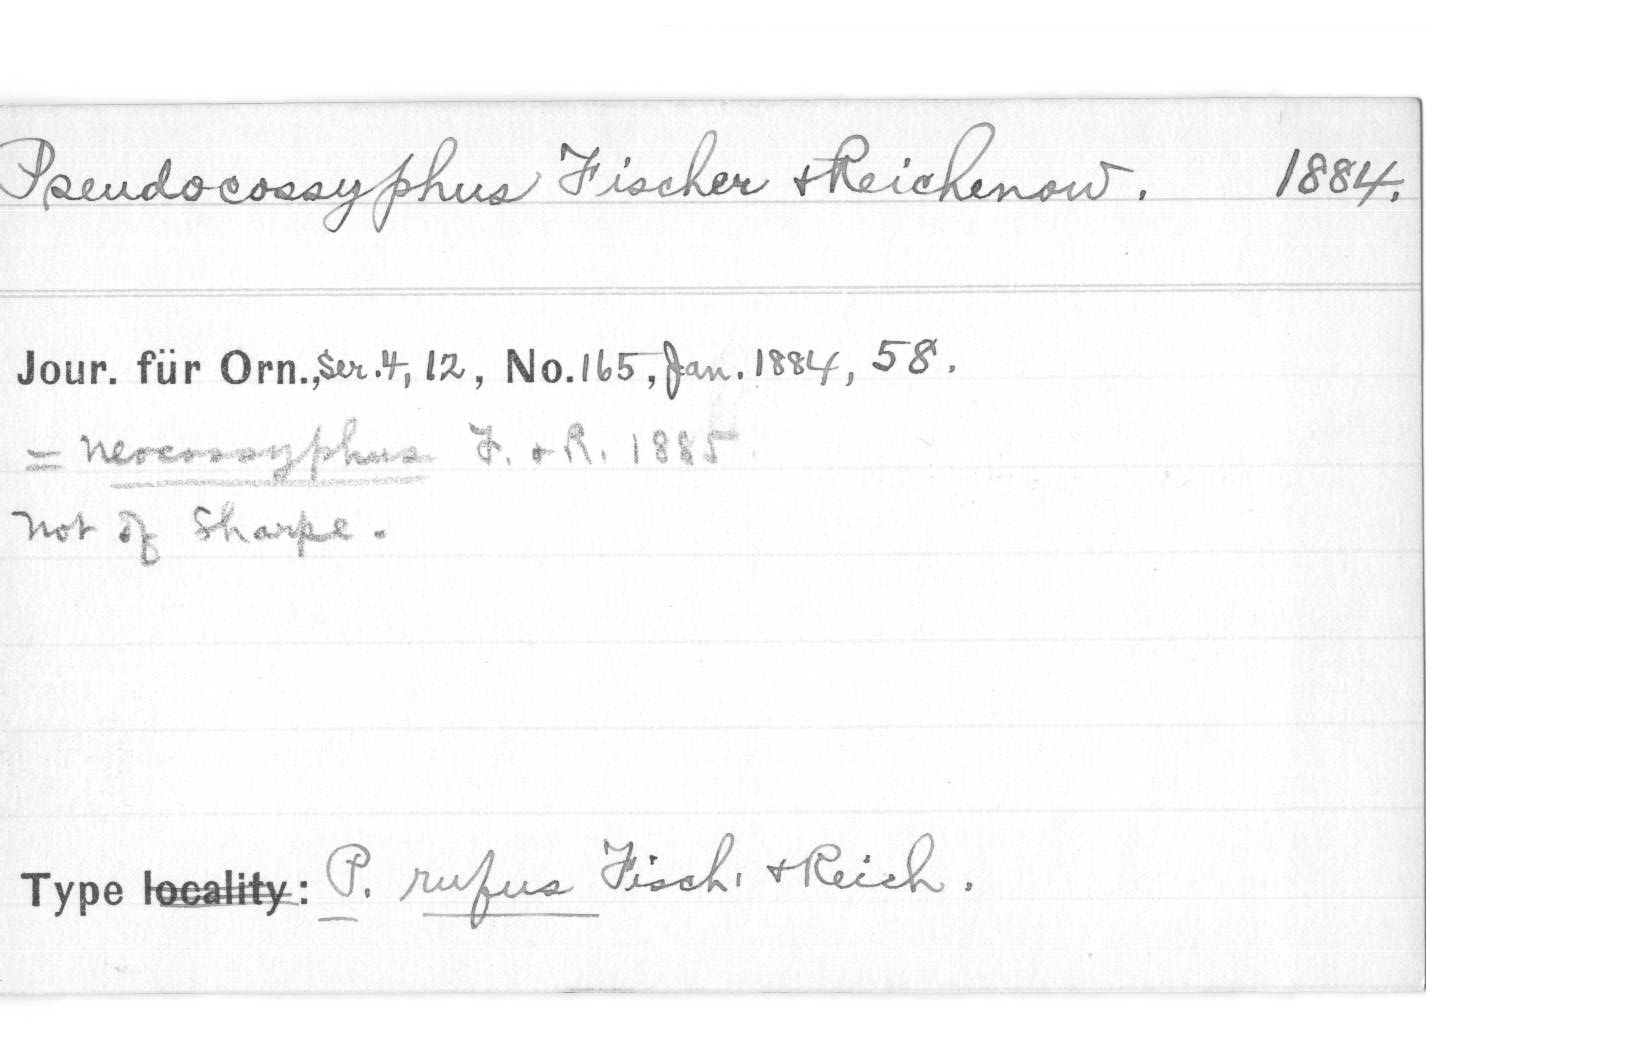 Pseudocossyphus Fischer + Reichenow. 1884.
Jour. für Orn., Ser. 4, 12, No. 165, Jan. 1884, 58.
= Neocossyphus F. + R. 1885
Not of Sharpe.
Type locality: P. rufus Fisch. + Reich.